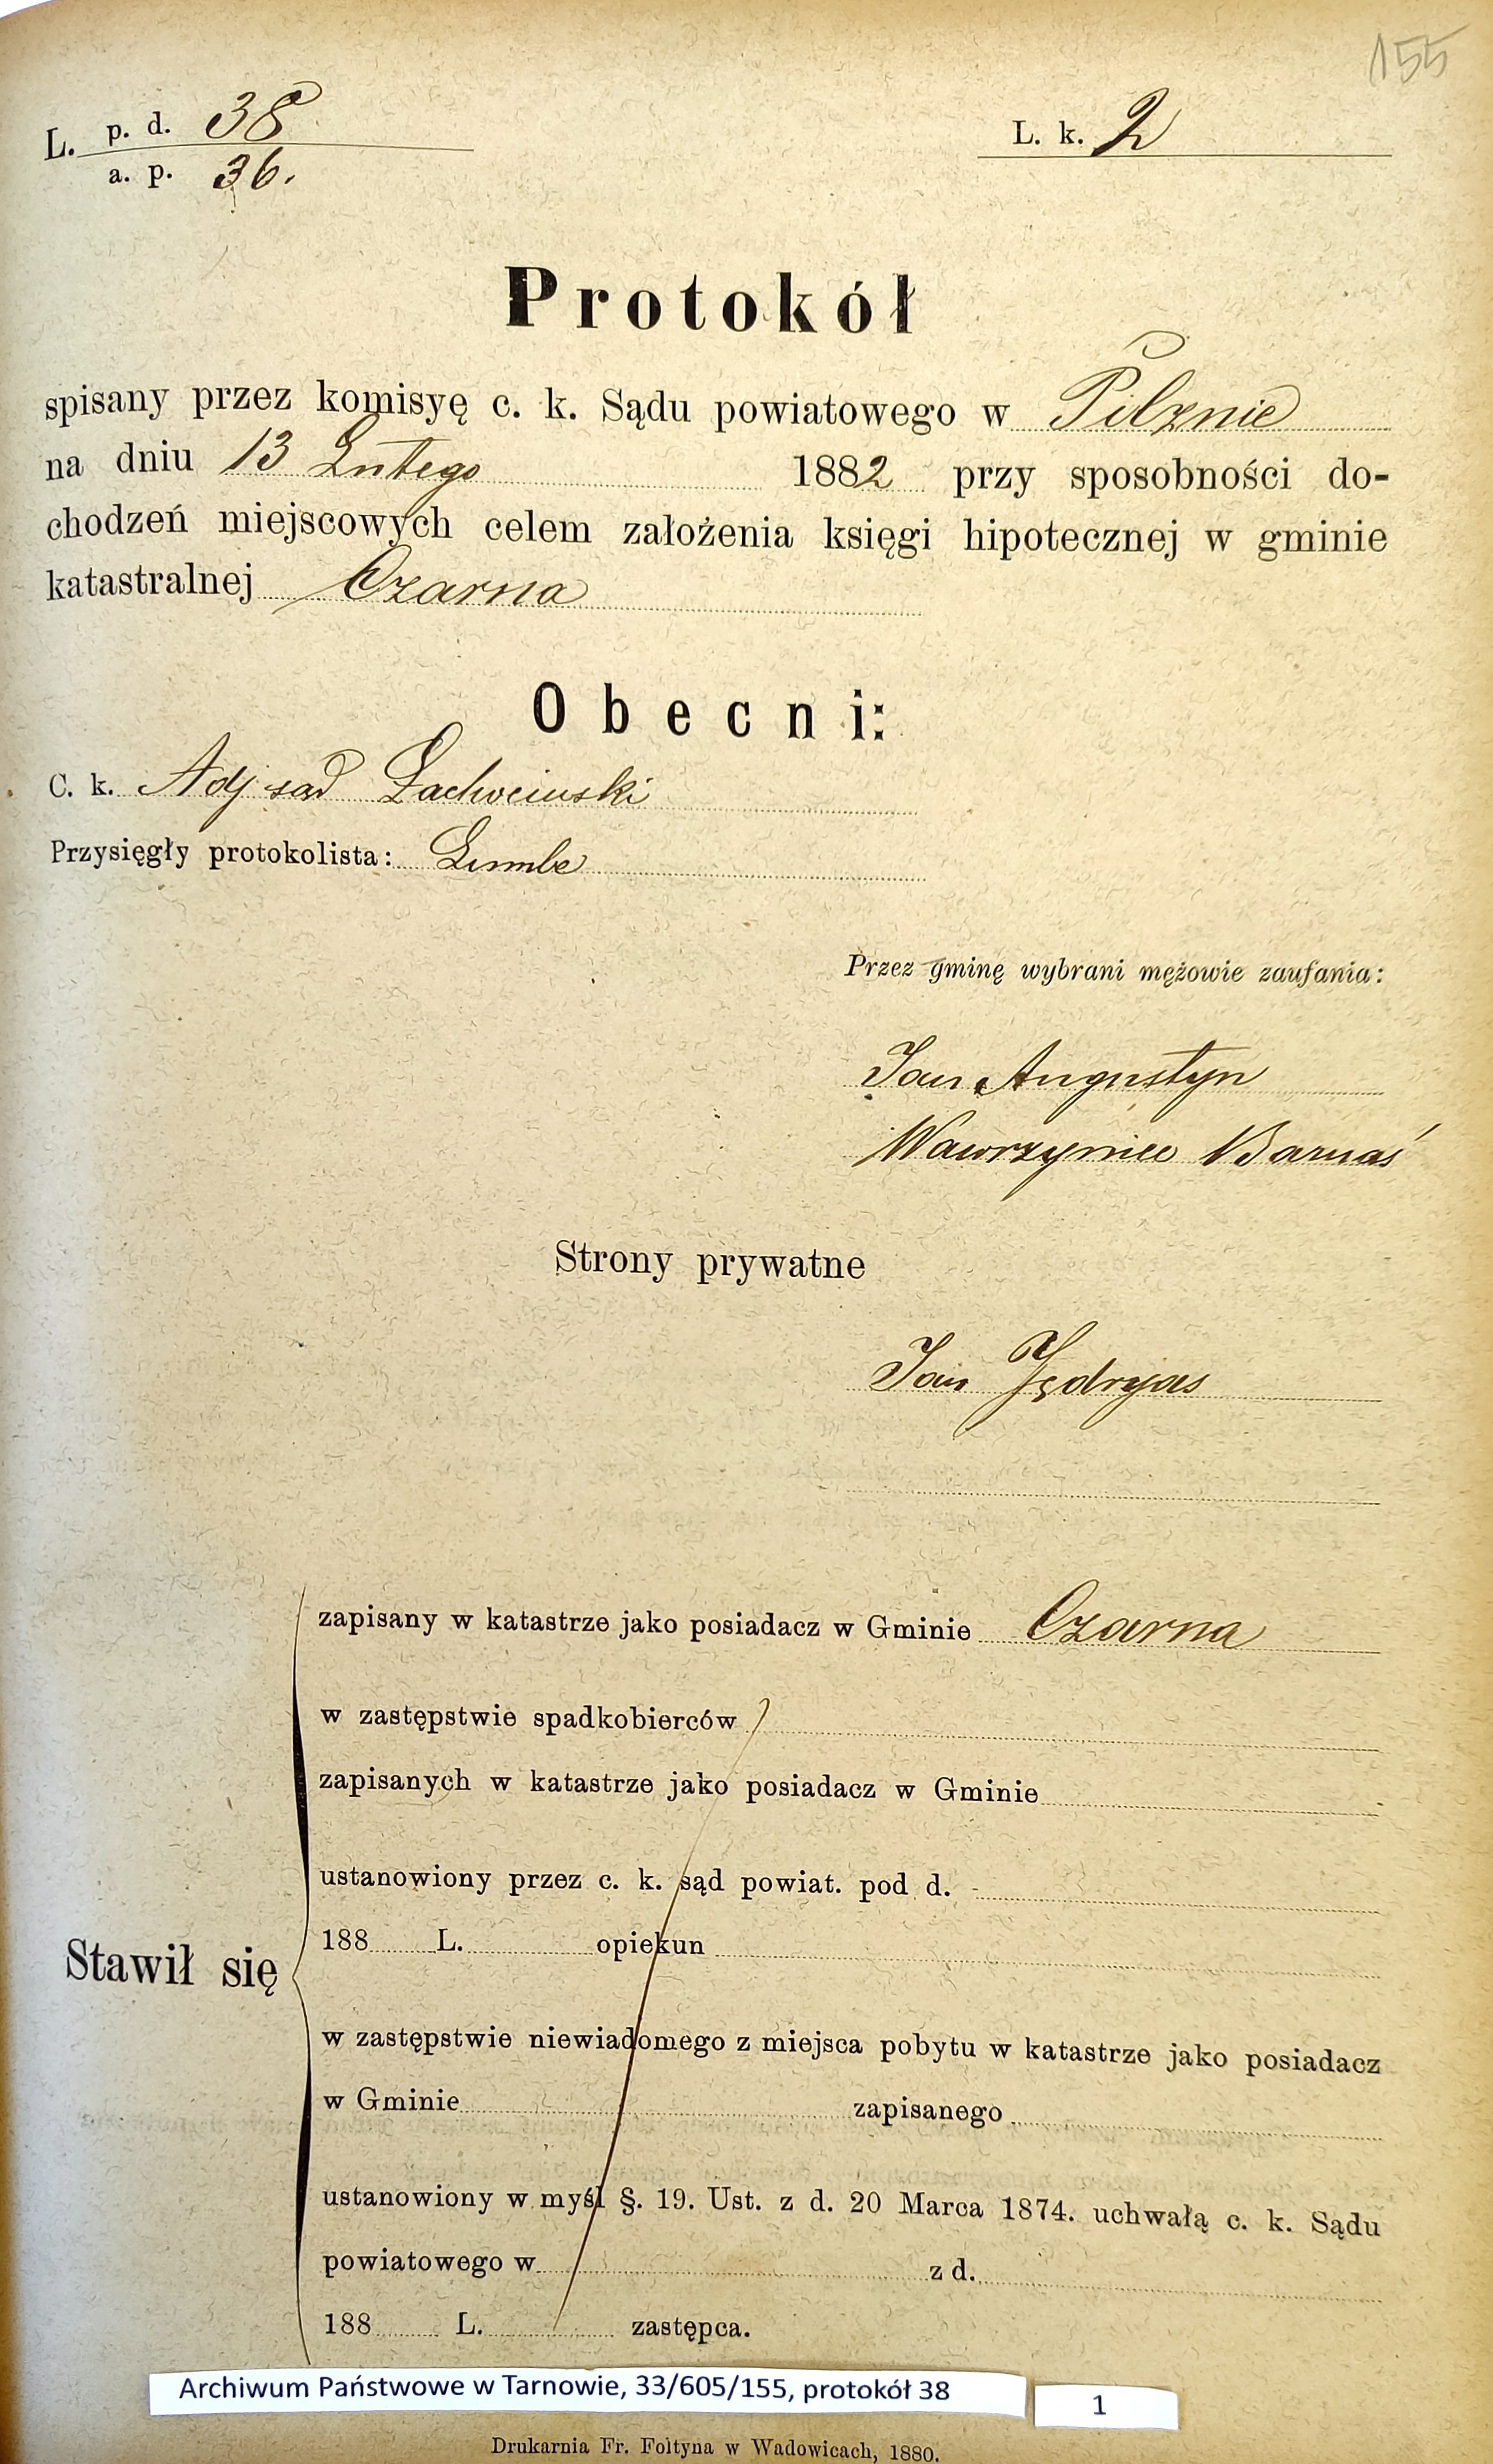 155
L. p. d. 38
a. p. 36.
L. k. 2
Protokół
spisany przez komisyę c. k. Sądu powiatowego w Pilznie
na dniu 13 Lutego 1882 przy sposobności do-
chodzeń miejscowych celem założenia księgi hipotecznej w gminie
katastralnej Czarna
Obecni:
C. k. Adj sąd
Przysięgły protokolista:
Przez gminę wybrani mężowie zaufania:
Jan Augustyn
Wawrzyniec Barnaś
Strony prywatne
Jan Jędryas
Stawił się
zapisany w katastrze jako posiadacz w Gminie Czarna
w zastępstwie spadkobierców
zapisanych w katastrze jako posiadacz w Gminie
ustanowiony przez c. k. sąd powiat. pod d.
188 L. opiekun
w zastępstwie niewiadomego z miejsca pobytu w katastrze jako posiadacz
w Gminie zapisanego
ustanowiony w myśl §. 19. Ust. z d. 20 Marca 1874. uchwałą c. k. Sądu
powiatowego w z d.
188 L. zastępca.
Archiwum Państwowe w Tarnowie, 33/605/155, protokół 38
1
Drukarnia Fr. Foltyna w Wadowicach, 1880.